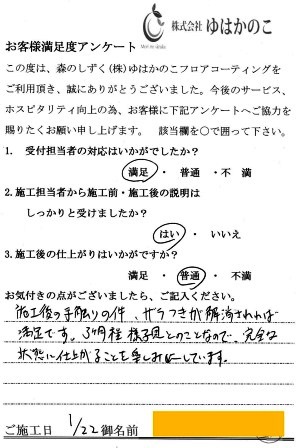 株式会社 ゆはかのこ
お客様満足度アンケート
この度は、森のしずく(株)ゆはかのこフロアコーティングを
ご利用頂き、誠にありがとうございました。今後のサービス、
ホスピタリティ向上の為、お客様に下記アンケートへご協力を
賜りたくお願い申し上げます。 該当欄を○で囲って下さい。
1. 受付担当者の対応はいかがでしたか?
満足 ・ 普通 ・ 不 満
2.施工担当者から施工前・施工後の説明は
しっかりと受けましたか?
はい ・ いいえ
3.施工後の仕上がりはいかがですか?
満足 ・ 普通 ・ 不 満
お気付きの点がございましたら、ご記入ください。
施工後の手触りの件、ザラつきが解消されれば
満足です。3ヶ月程様子見とのことなので、完全な
状態に仕上がることを楽しみにしています。
ご施工日 1/22 御名前